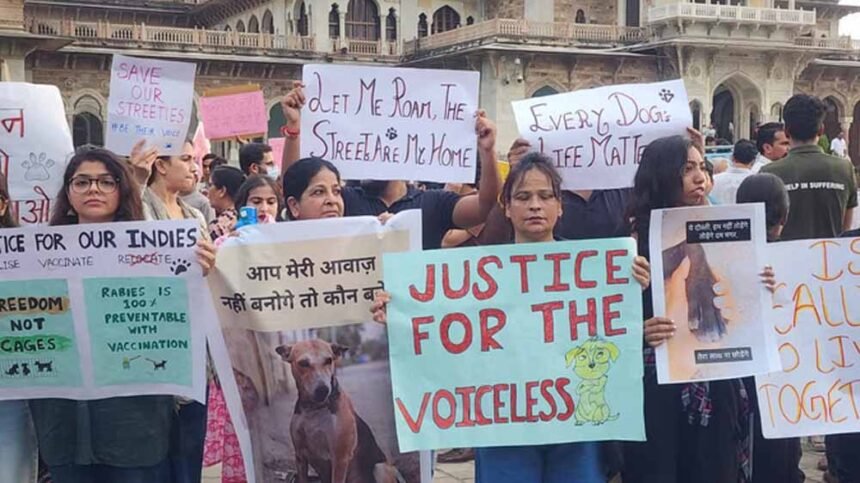 SAVE
OUR
STREETIES
#BE THEIR VOICE
LET ME ROAM, THE
STREET ARE MY HOME
EVERY DOG'S
LIFE MATTE
न
HELP IN SUFFERING
ICE FOR OUR INDIES
LISE VACCINATE RELOCATE
FREEDOM
NOT
CAGES
RABIES IS
100%
PREVENTABLE
WITH
VACCINATION
आप मेरी आवाज़
नहीं बनोगे तो कौन
JUSTICE
FOR THE
VOICELESS
ये दोस्ती, हम नहीं तोड़ेंगे
तोड़ेंगे दम मगर,
तेरा साथ ना छोड़ेंगे
IS
CALL
O LIV
TOGET